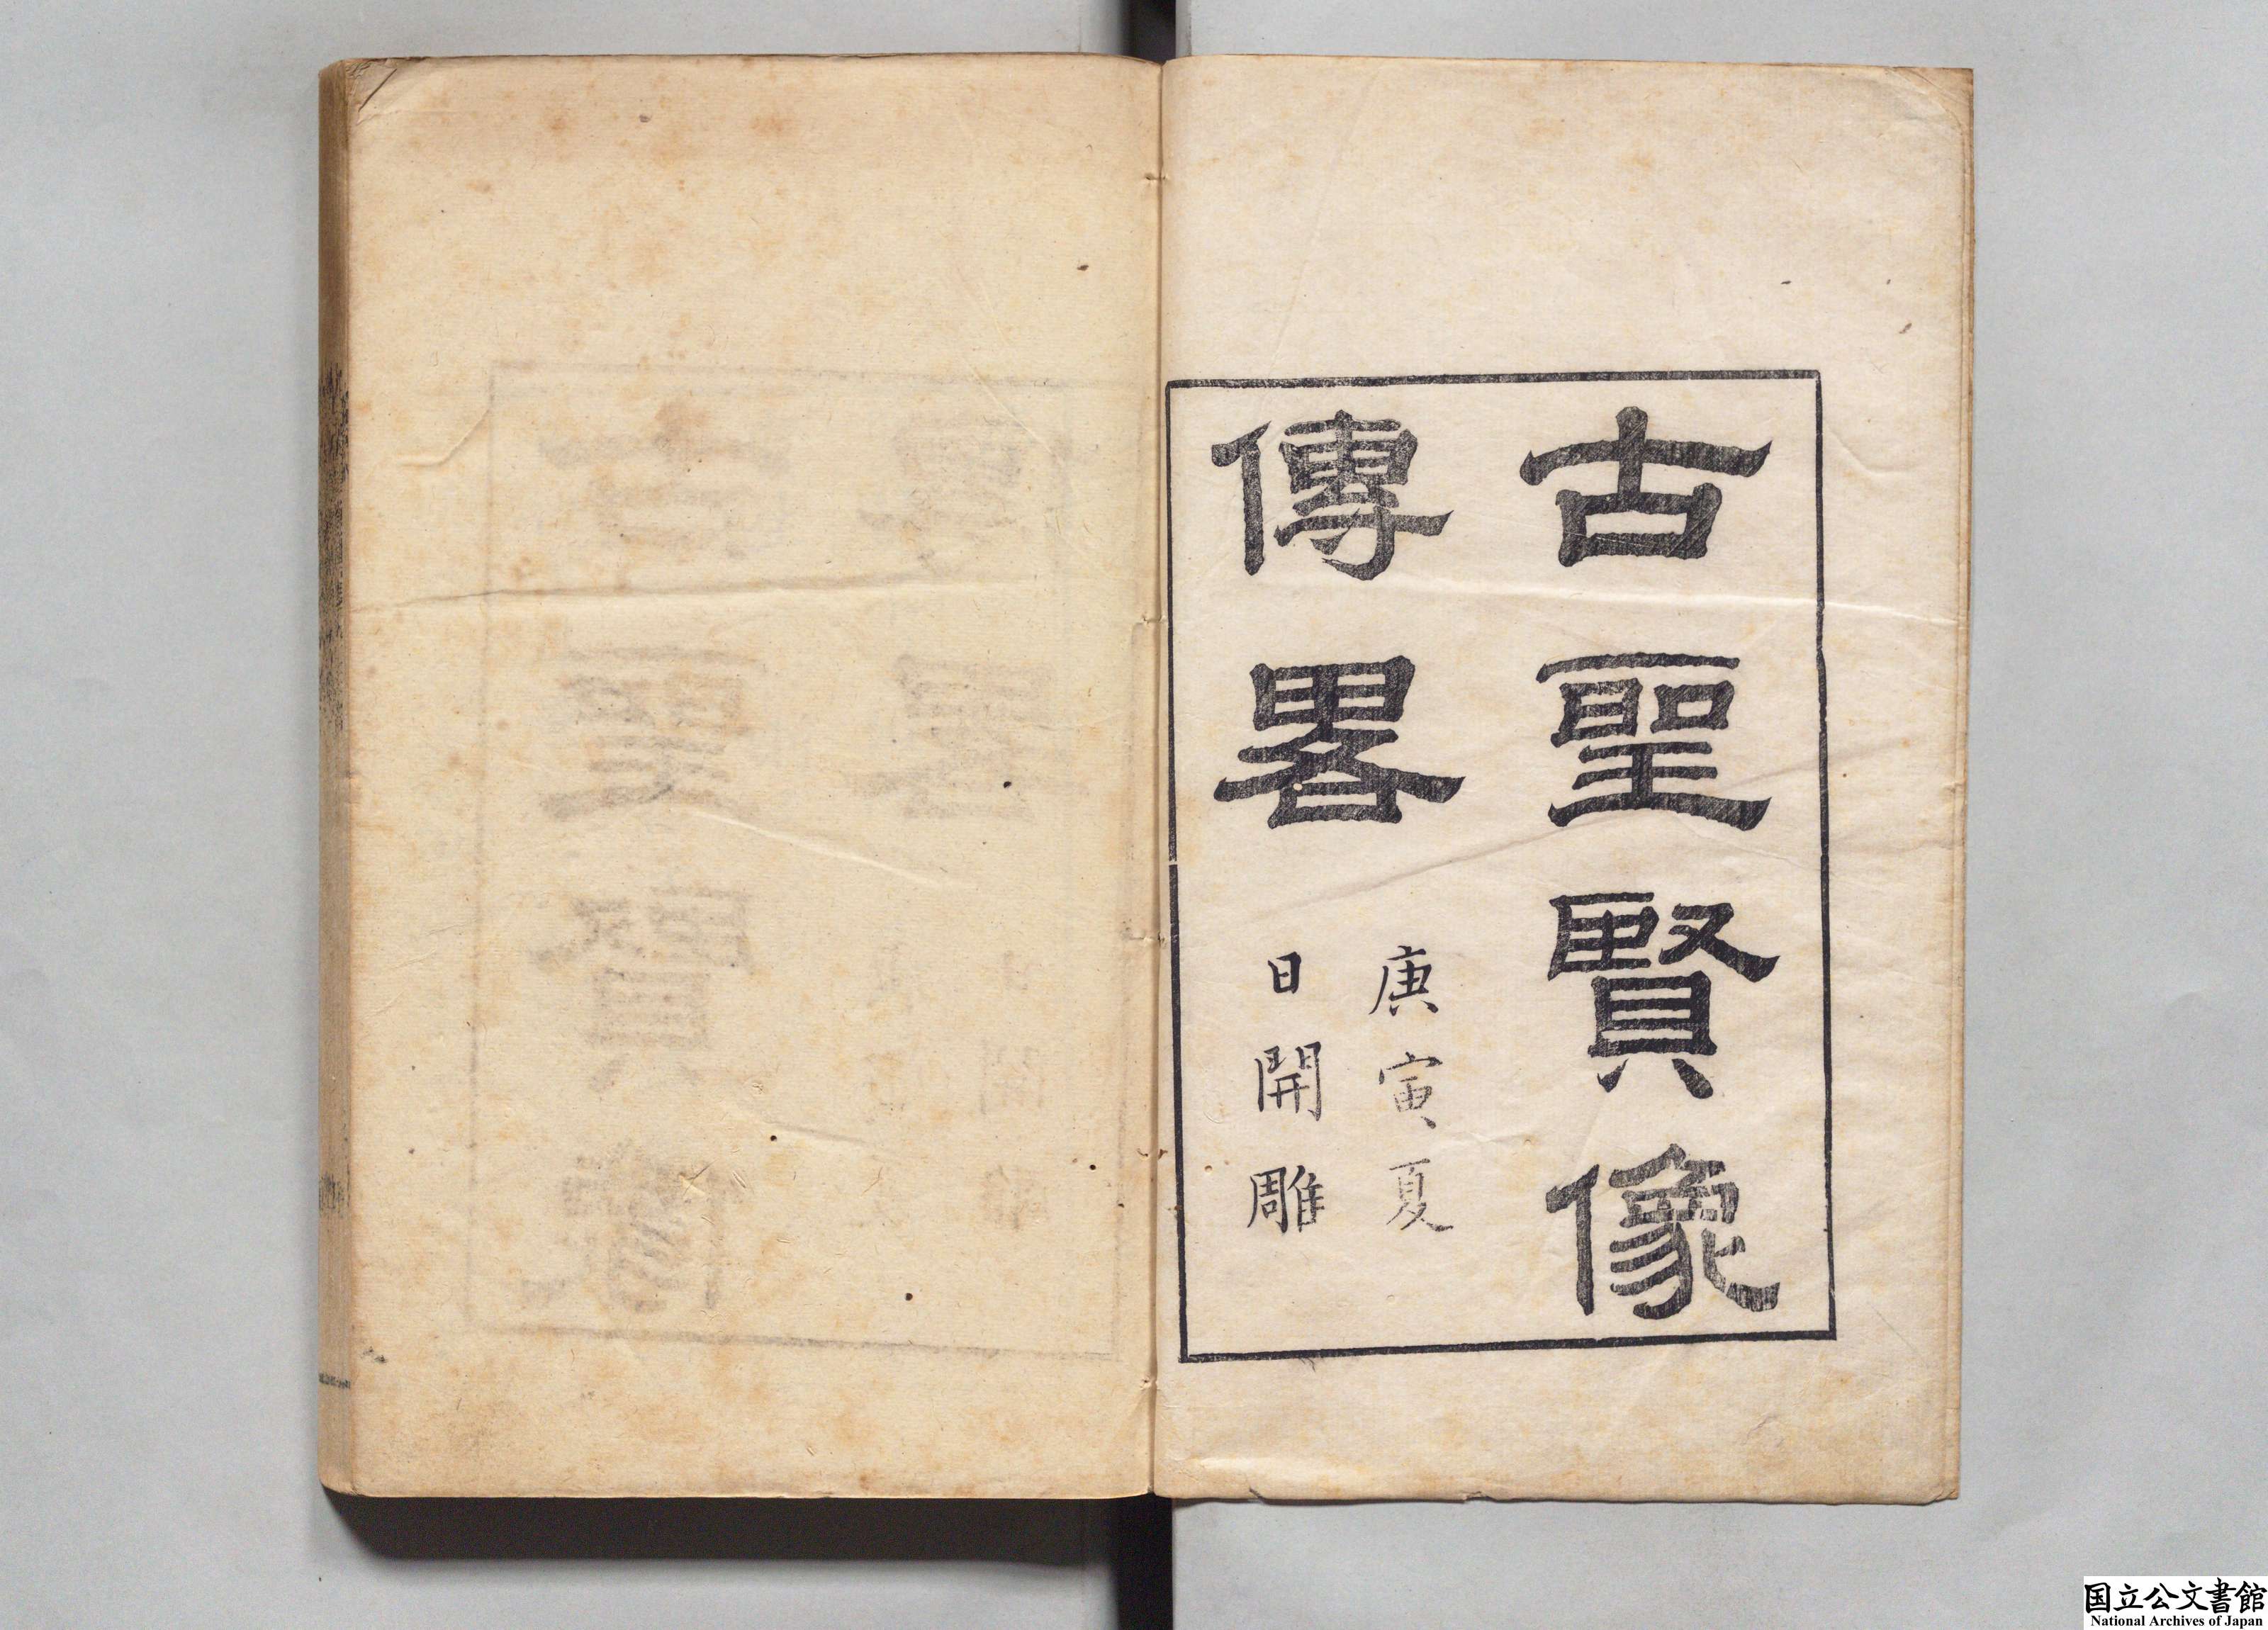 古聖賢像
傳畧
庚寅夏
日開雕
国立公文書館
National Archives of Japan